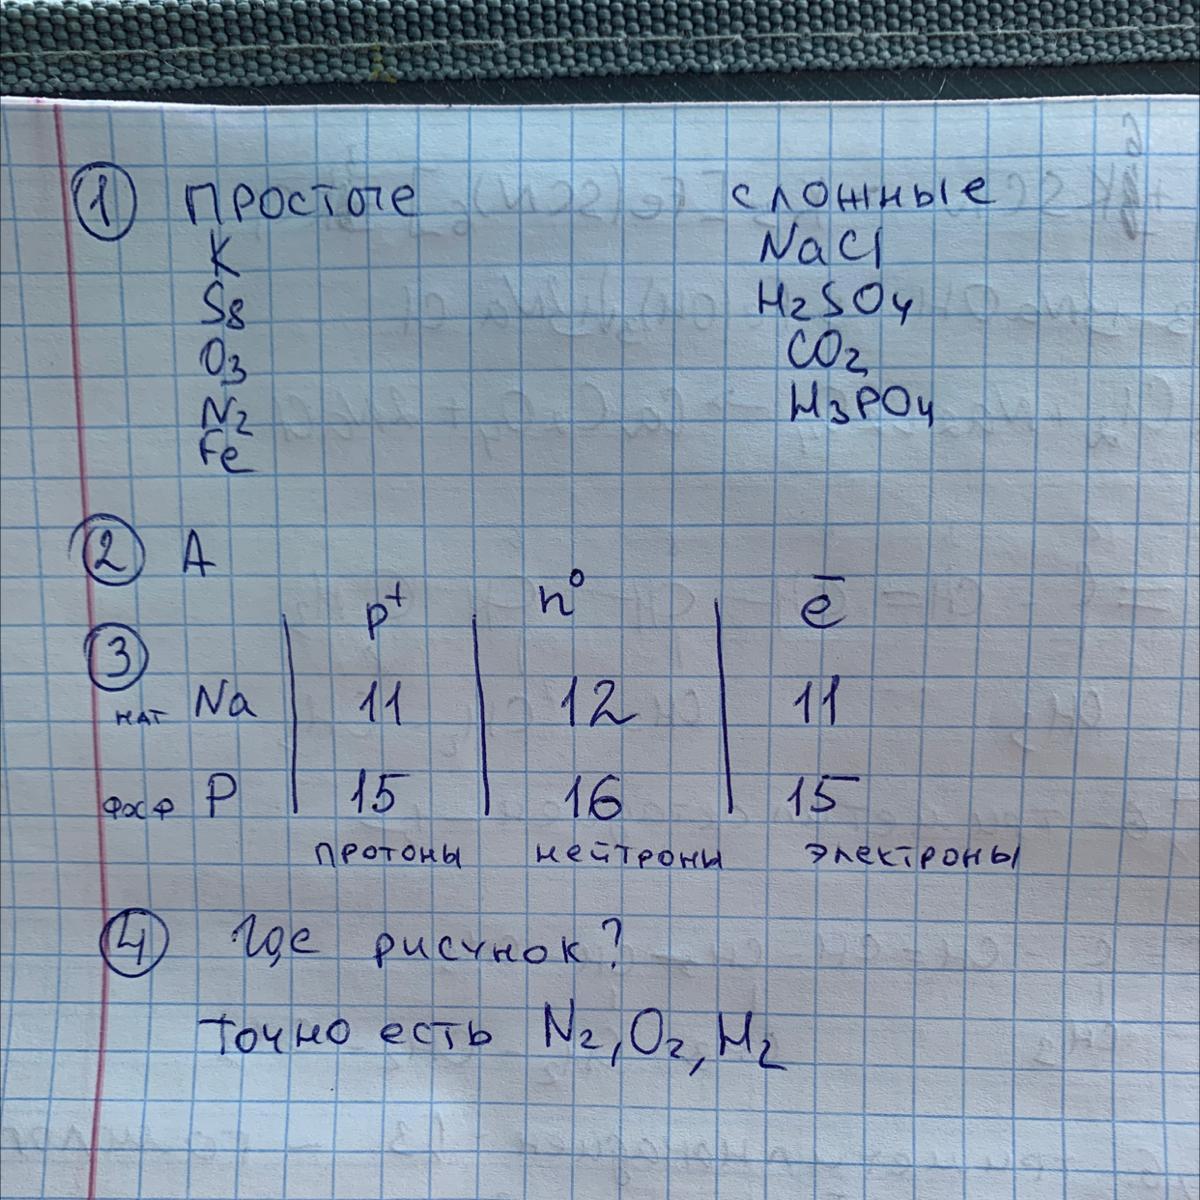 1 простые сложные
K NaCl
S8 H2SO4
O3 CO2
N2 H3PO4
Fe
2 А
p⁺ n⁰ e̅
3
нат Na 11 12 11
фосф P 15 16 15
протоны нейтроны электроны
4 Где рисунок?
точно есть N2, O2, H2